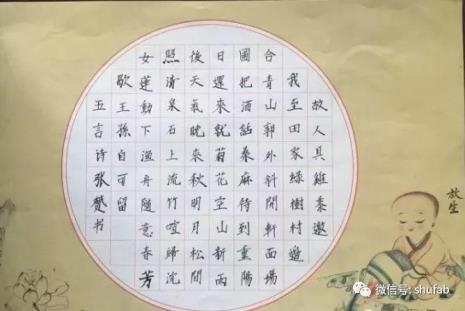 故人具雞黍邀
我至田家綠樹村邊
合青山郭外斜開軒面場
圃把酒話桑麻待到重陽
日還來就菊花空山新雨
後天氣晚來秋明月松間
照清泉石上流竹喧歸浣
女蓮動下漁舟隨意春芳
歇王孫自可留
五言诗张楚书
放生
微信号: shufab